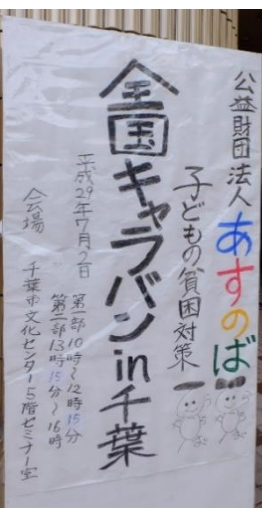 公益財団法人 あすのば
子どもの貧困対策
全国キャラバン in 千葉
平成29年7月2日
第一部 10時〜12時15分
第二部 13時15分〜16時
会場 千葉市文化センター5階セミナー室